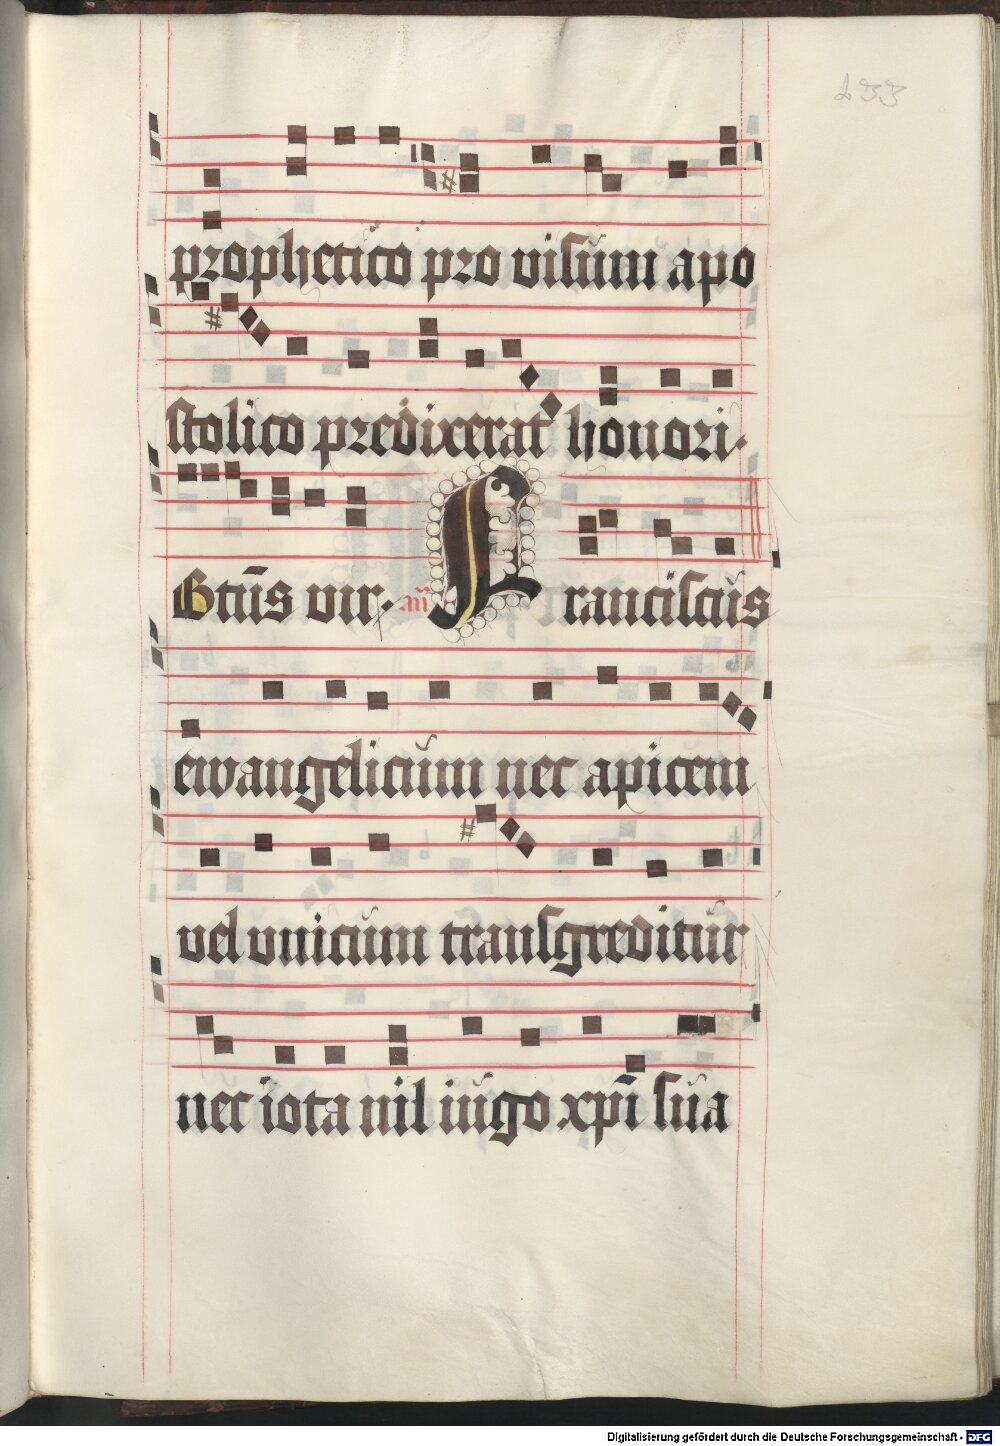 233
prophetico pro visum apo
stolico predixerat honori.
Bctūs vir. añ Franciscus
ewangelicum nec apicem
vel vnicum transgreditur
nec iota nil iugo xp̄i sua
Digitalisierung gefördert durch die Deutsche Forschungsgemeinschaft - DFG